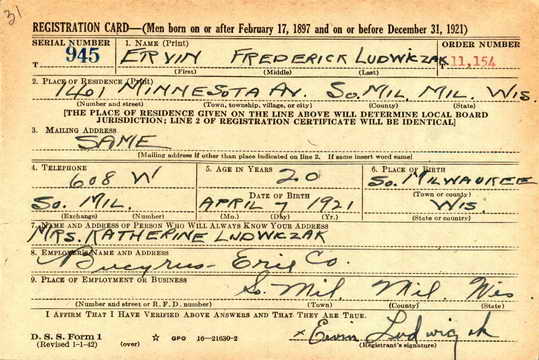 31
REGISTRATION CARD—(Men born on or after February 17, 1897 and on or before December 31, 1921)
SERIAL NUMBER 1. NAME (Print) ORDER NUMBER
T 945 ERVIN FREDERICK LUDWICZAK T 11,154
(First) (Middle) (Last)
2. PLACE OF RESIDENCE (Print)
1401 MINNESOTA AV. SO. MIL. MIL. WIS.
(Number and street) (Town, township, village, or city) (County) (State)
[THE PLACE OF RESIDENCE GIVEN ON THE LINE ABOVE WILL DETERMINE LOCAL BOARD
JURISDICTION; LINE 2 OF REGISTRATION CERTIFICATE WILL BE IDENTICAL]
3. MAILING ADDRESS
SAME
[Mailing address if other than place indicated on line 2. If same insert word same]
4. TELEPHONE 5. AGE IN YEARS 6. PLACE OF BIRTH
608 W 20 SO. MILWAUKEE
DATE OF BIRTH (Town or county)
SO. MIL. APRIL 7 1921 WIS.
(Exchange) (Number) (Mo.) (Day) (Yr.) (State or country)
7. NAME AND ADDRESS OF PERSON WHO WILL ALWAYS KNOW YOUR ADDRESS
MRS. KATHERINE LUDWICZAK
8. EMPLOYER'S NAME AND ADDRESS
Bucyrus-Erie Co.
9. PLACE OF EMPLOYMENT OR BUSINESS
So. Mil. Mil. Wis.
(Number and street or R. F. D. number) (Town) (County) (State)
I AFFIRM THAT I HAVE VERIFIED ABOVE ANSWERS AND THAT THEY ARE TRUE.
D. S. S. Form 1
(Revised 1-1-42) (over) ☆ GPO 16—21630-2 x Ervin Ludwiczak
(Registrant's signature)